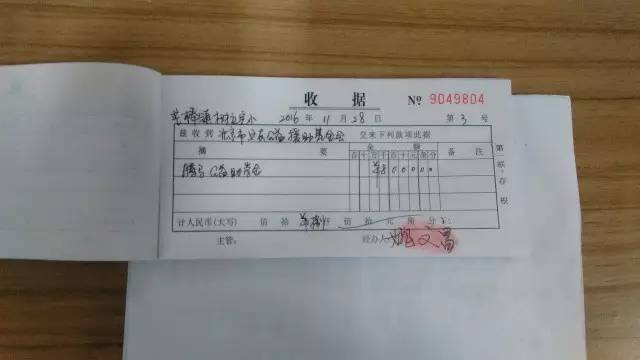 收 据 № 9049804
2016 年 11 月 28 日 第 3 号
兹收到 北京市 公益 援助基金会 交来下列款项此据
摘 要 金 额 备 注
百 十 万 千 百 十 元 角 分
腾讯公益助学金 ¥ 8 0 0 0 0 0
计人民币(大写) 佰 拾 万 捌仟 佰 拾 元 角 分
主管: 经办人
第一联:存根